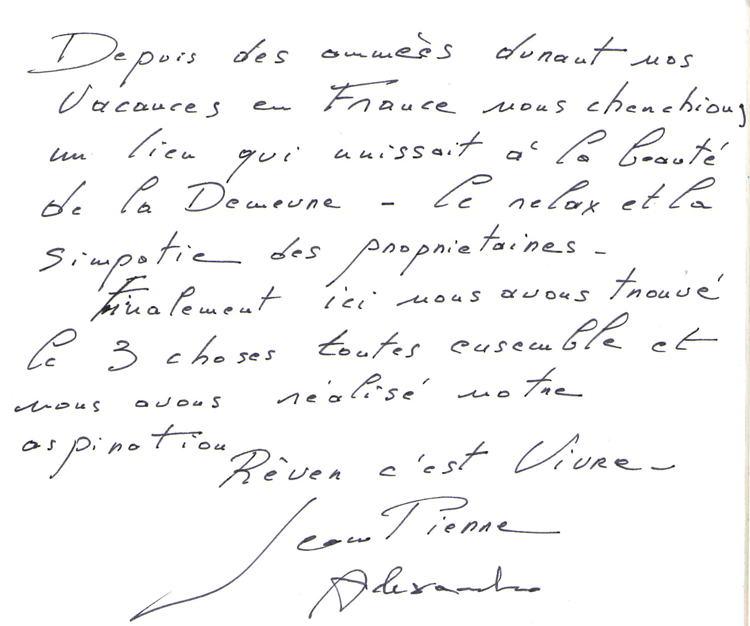 Depuis des annèès durant nos
Vacances en France nous cherchions
un lieu qui unissait a' la beauté
de la Demeure - le relax et la
simpatie des proprietaires -
Finalement ici nous avons trouvé
le 3 choses toutes ensemble et
nous avons réalisé notre
aspiration
Rêver c'est Vivre -
Jean Pierre
Alexandra